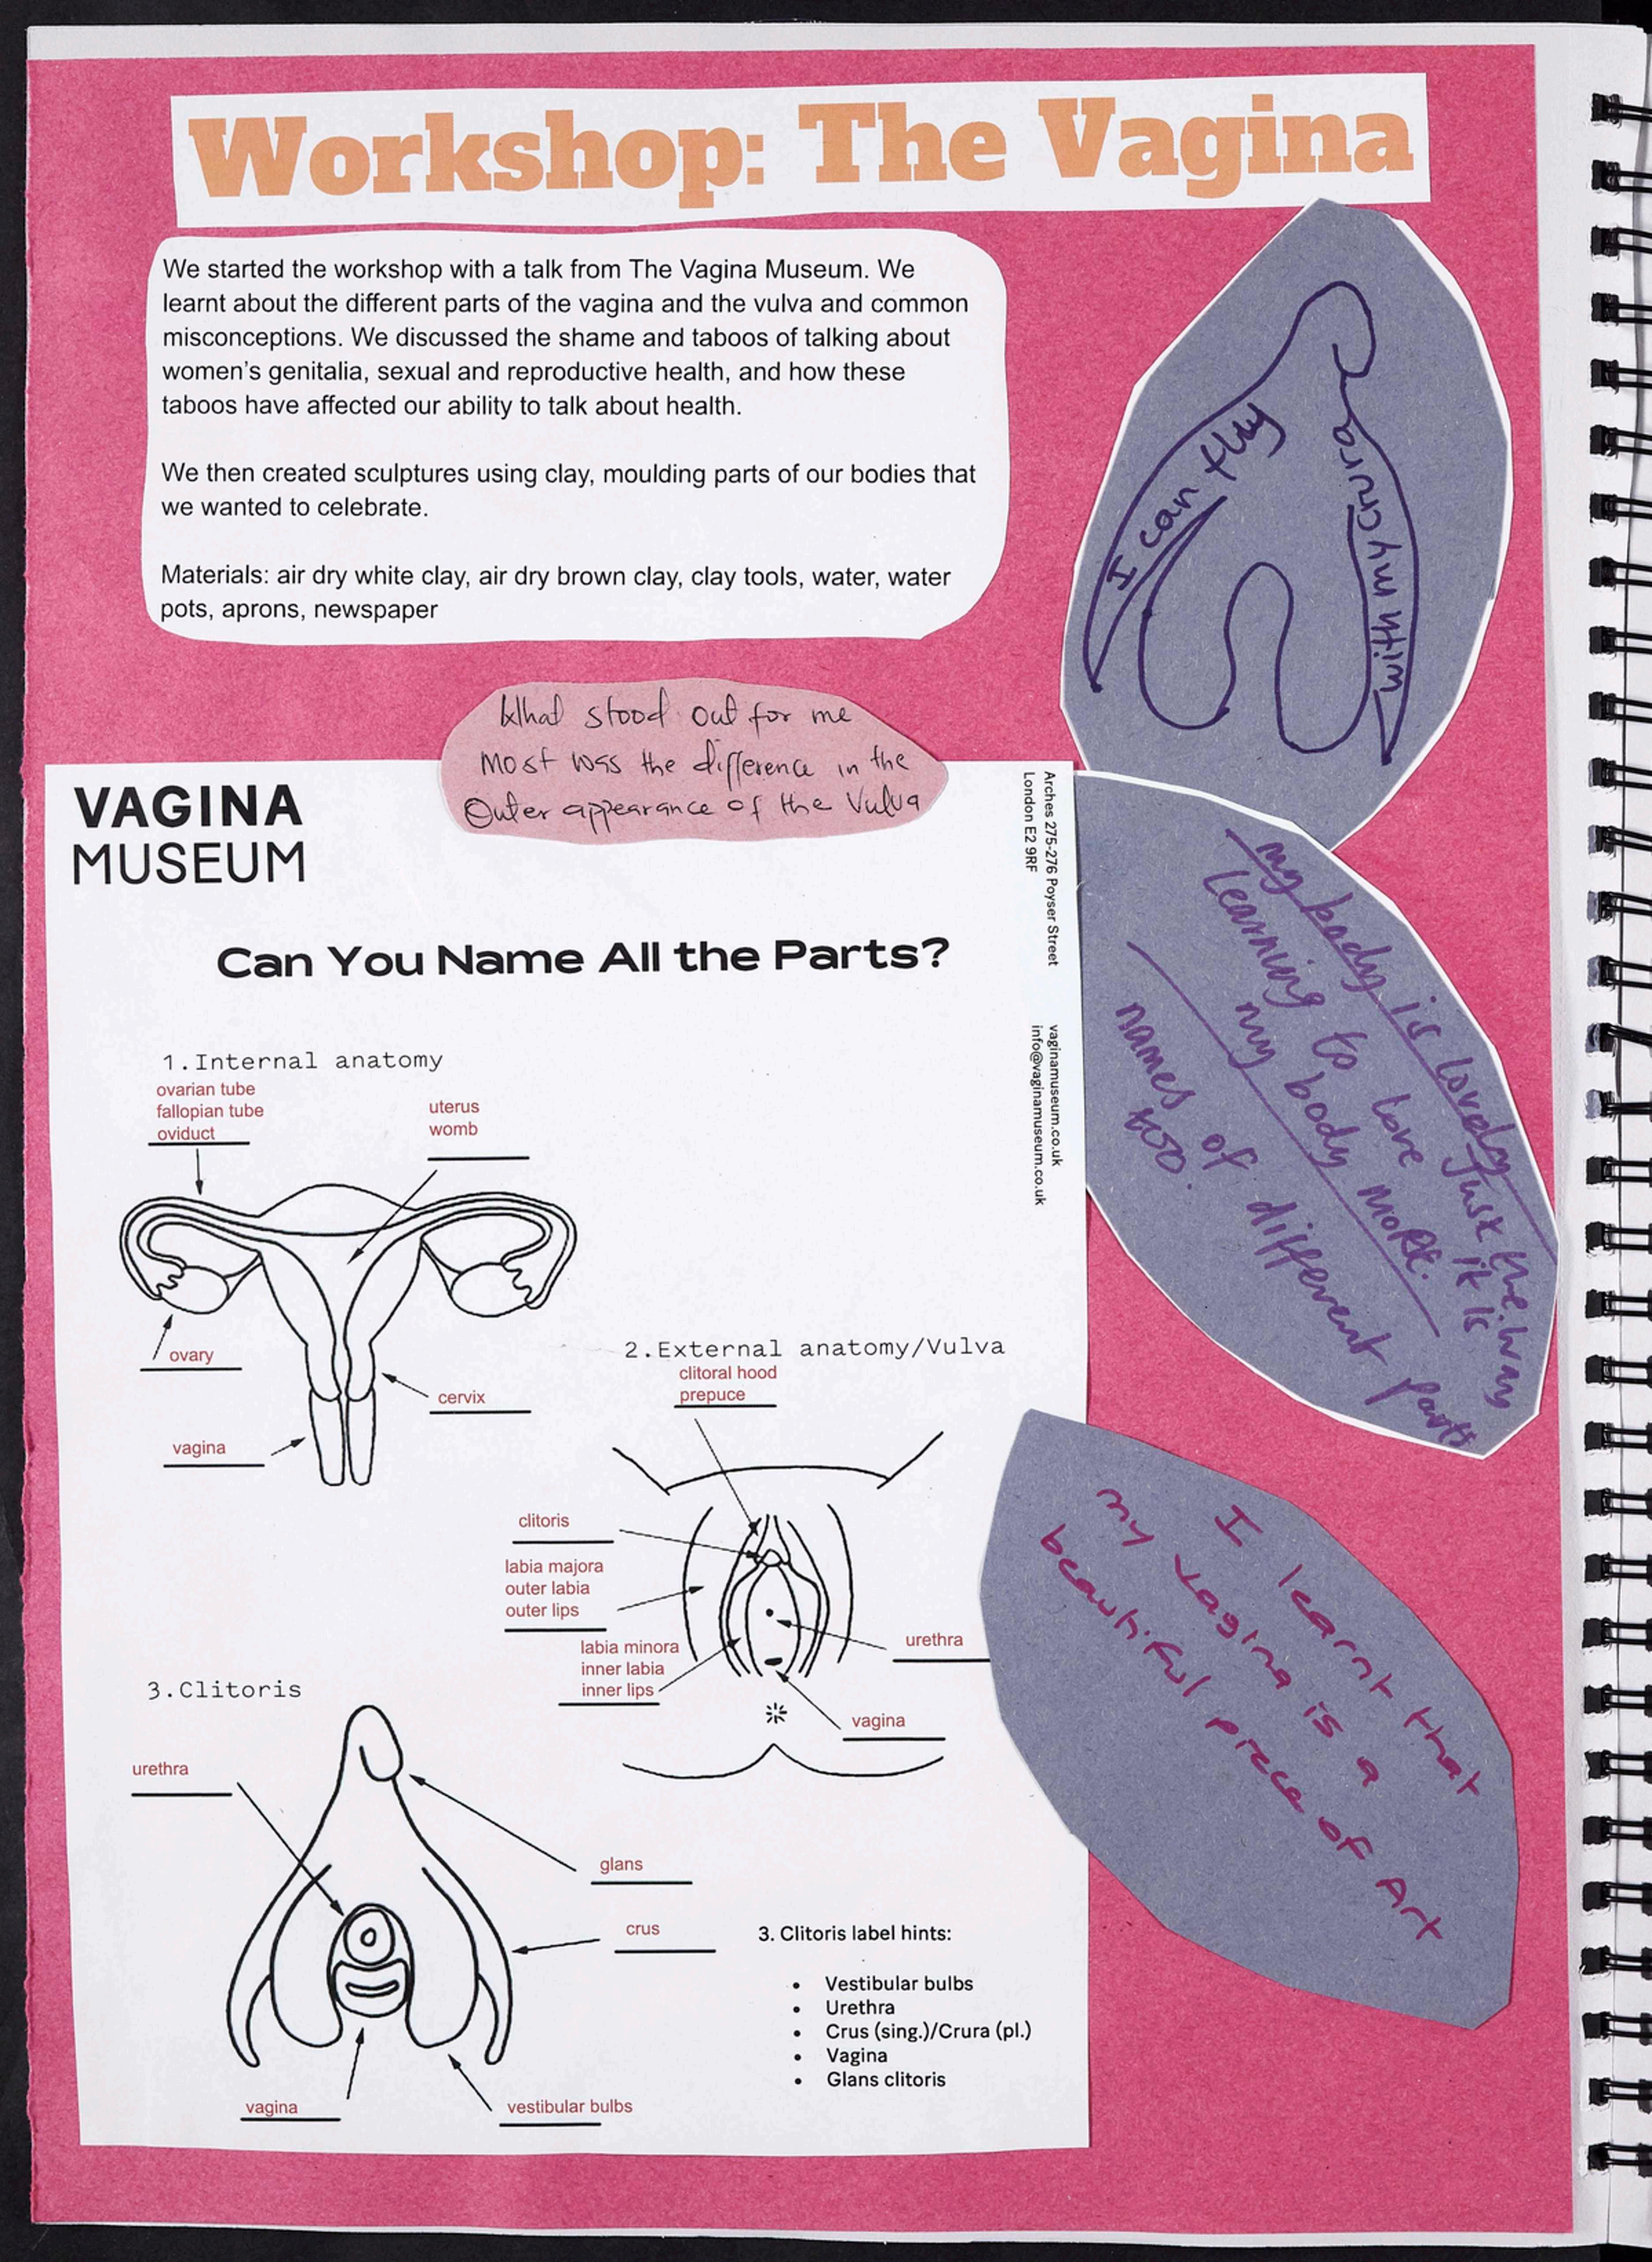 Workshop: The Vagina
We started the workshop with a talk from The Vagina Museum. We
learnt about the different parts of the vagina and the vulva and common
misconceptions. We discussed the shame and taboos of talking about
women's genitalia, sexual and reproductive health, and how these
taboos have affected our ability to talk about health.
We then created sculptures using clay, moulding parts of our bodies that
we wanted to celebrate.
Materials: air dry white clay, air dry brown clay, clay tools, water, water
pots, aprons, newspaper
I can fly
with my crura
What stood out for me
most was the difference in the
Outer appearance of the Vulva
VAGINA
MUSEUM
Arches 275-276 Poyser Street
London E2 9RF
vaginamuseum.co.uk
info@vaginamuseum.co.uk
Can You Name All the Parts?
my body is lovely just the way
it is
learning to love
my body more.
names of different parts
too.
1.Internal anatomy
ovarian tube
fallopian tube
oviduct
uterus
womb
ovary
cervix
vagina
2.External anatomy/Vulva
clitoral hood
prepuce
clitoris
labia majora
outer labia
outer lips
labia minora
inner labia
inner lips
urethra
vagina
I learnt that
my vagina is a
beautiful piece of Art
3.Clitoris
urethra
glans
crus
vagina
vestibular bulbs
3. Clitoris label hints:
• Vestibular bulbs
• Urethra
• Crus (sing.)/Crura (pl.)
• Vagina
• Glans clitoris